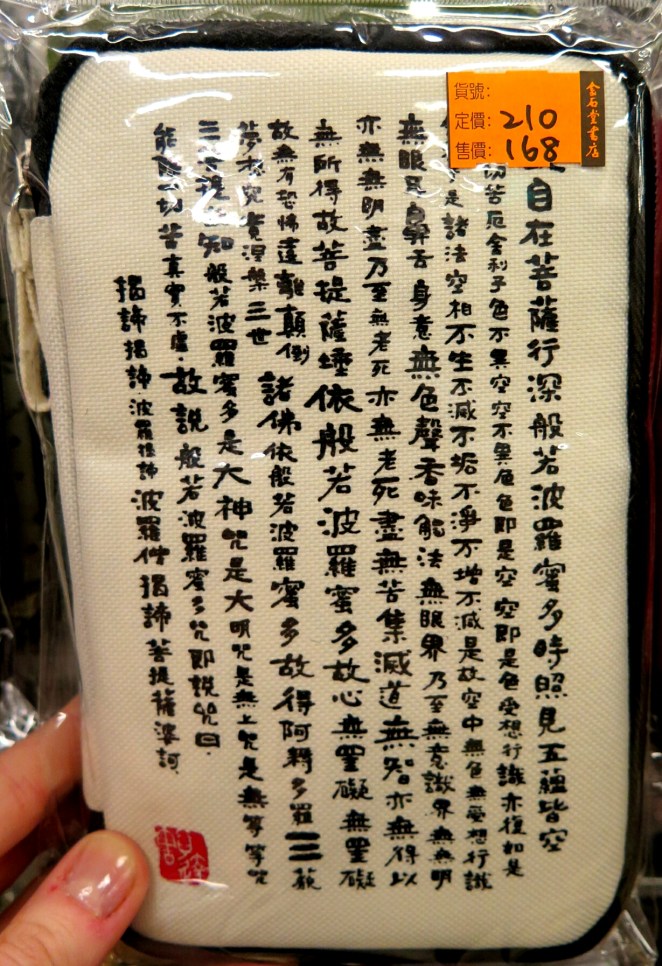 貨號:
定價: 210
售價: 168
金石堂書店
自在菩薩行深般若波羅蜜多時照見五蘊皆空
切苦厄舍利子色不異空空不異色色即是空空即是色受想行識亦復如是
是諸法空相不生不滅不垢不淨不增不減是故空中無色無受想行識
無眼耳鼻舌身意無色聲香味觸法無眼界乃至無意識界無無明
亦無無明盡乃至無老死亦無老死盡無苦集滅道無智亦無得以
無所得故菩提薩埵依般若波羅蜜多故心無罣礙無罣礙
故無有恐怖遠離顛倒
夢想究竟涅槃三世
諸佛依般若波羅蜜多故得阿耨多羅三藐
三菩提故知般若波羅蜜多是大神咒是大明咒是無上咒是無等等咒
能除一切苦真實不虛故說般若波羅蜜多咒即說咒曰
揭諦揭諦波羅揭諦波羅僧揭諦菩提薩婆訶